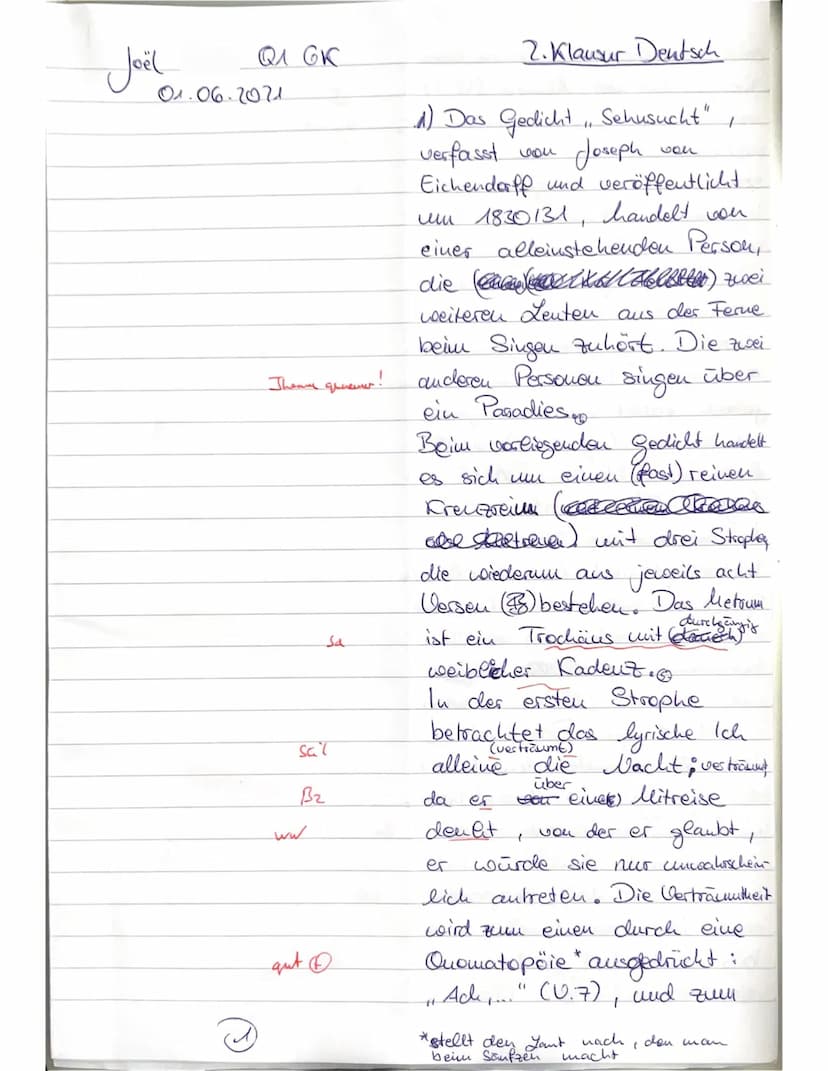 Joël Q1 GK 2. Klausur Deutsch
01.06.2021
1) Das Gedicht „Sehnsucht",
verfasst von Joseph von
Eichendorff und veröffentlicht
um 1830/31, handelt von
einer alleinstehenden Person,
die zwei
weiteren Leuten aus der Ferne
beim Singen zuhört. Die zwei
Thema genauer! anderen Personen singen über
ein Paradies.
Beim vorliegenden Gedicht handelt
es sich um einen (fast) reinen
Kreuzreim (
) mit drei Strophen,
die wiederum aus jeweils acht
Versen bestehen. Das Metrum
durchgängig
Sa ist ein Trochäus mit
weiblicher Kadenz.
In der ersten Strophe
betrachtet das lyrische Ich
(verträumt)
alleine die Nacht; verträumt,
über
Bz da er eine Mitreise
ww denkt, von der er glaubt,
er würde sie nur unwahrschein-
lich antreten. Die Verträumtheit
wird zum einen durch eine
gut + Onomatopöie* ausgedrückt:
„Ach,..." (V.7), und zum
1
*stellt den Laut nach, den man
beim Seufzen macht